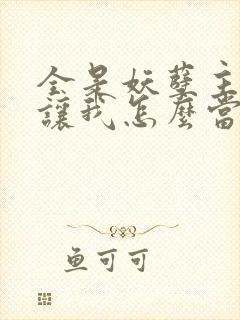 全是妖孽主
讓我怎麼當
鱼可可